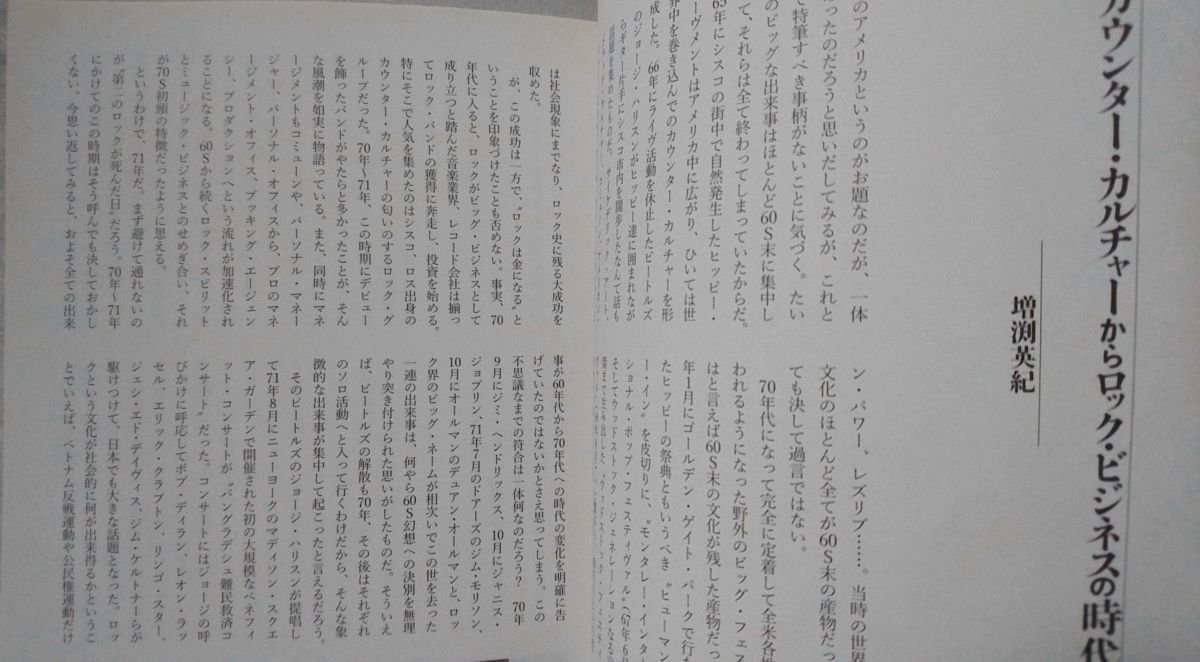 カウンター・カルチャーからロック・ビジネスの時代
増渕英紀
のアメリカというのがお題なのだが、一体
ったのだろうと思いだしてみるが、これと
て特筆すべき事柄がないことに気づく。たい
のビッグな出来事はほとんど60S末に集中し
て、それらは全て終わってしまっていたからだ。
65年にシスコの街中で自然発生したヒッピー・
ーヴメントはアメリカ中に広がり、ひいては世
界中を巻き込んでのカウンター・カルチャーを形
成した。66年にライヴ活動を休止したビートルズ
のジョージ・ハリスンがヒッピー達に囲まれなが
らギター片手にシスコ市内を闊歩したなんて話も
ン・パワー、レズリブ……。当時の世界
文化のほとんど全てが60S末の産物だっ
ても決して過言ではない。
70年代になって完全に定着して全米各地
われるようになった野外のビッグ・フェス
はと言えば60S末の文化が残した産物だっ
年1月にゴールデン・ゲイト・パークで行な
たヒッピーの祭典ともいうべき〝ヒューマン
ー・イン〟を皮切りに、〝モンタレー・インタ
ショナル・ポップ・フェスティヴァル〟(67年6
そしてウッドストック・ジェネレーションなる
は社会現象にまでなり、ロック史に残る大成功を
収めた。
が、この成功は一方で、〝ロックは金になる〟と
いうことを印象づけたことも否めない。事実、70
年代に入ると、ロックがビッグ・ビジネスとして
成り立つと踏んだ音楽業界、レコード会社は揃っ
てロック・バンドの獲得に奔走し、投資を始める。
特にそこで人気を集めたのはシスコ、ロス出身の
カウンター・カルチャーの匂いのするロック・グ
ループだった。70年〜71年、この時期にデビュー
を飾ったバンドがやたらと多かったことが、そん
な風潮を如実に物語っている。また、同時にマネ
ージメントもコミューンや、パーソナル・マネー
ジャー、パーソナル・オフィスから、プロのマネ
ージメント・オフィス、ブッキング・エージェン
シー、プロダクションへという流れが加速化され
ることになる。60Sから続くロック・スピリット
とミュージック・ビジネスとのせめぎ合い、それ
が70S初頭の特徴だったように思える。
というわけで、71年だ。まず避けて通れないの
が〝第二のロックが死んだ日〟だろう。70年〜71年
にかけてのこの時期はそう呼んでも決しておかし
くない。今思い返してみると、およそ全ての出来
事が60年代から70年代への時代の変化を明確に告
げていたのではないかとさえ思ってしまう。この
不思議なまでの符合は一体何なのだろう? 70年
9月にジミ・ヘンドリックス、10月にジャニス・
ジョプリン、71年7月のドアーズのジム・モリソン、
10月にオールマンのデュアン・オールマンと、ロッ
ク界のビッグ・ネームが相次いでこの世を去った
一連の出来事は、何やら60S幻想への決別を無理
やり突き付けられた思いがしたものだ。そういえ
ば、ビートルズの解散も70年、その後はそれぞれ
のソロ活動へと入って行くわけだから、そんな象
徴的な出来事が集中して起こったと言えるだろう。
そのビートルズのジョージ・ハリスンが提唱し
て71年8月にニューヨークのマディソン・スクエ
ア・ガーデンで開催された初の大規模なベネフィ
ット・コンサートが〝バングラデシュ難民救済コ
ンサート〟だった。コンサートにはジョージの呼
びかけに呼応してボブ・ディラン、レオン・ラッ
セル、エリック・クラプトン、リンゴ・スター、
ジェシ・エド・デイヴィス、ジム・ケルトナーらが
駆けつけて、日本でも大きな話題となった。ロッ
クという文化が社会的に何が出来得るかというこ
とでいえば、ベトナム反戦運動や公民権運動だけ